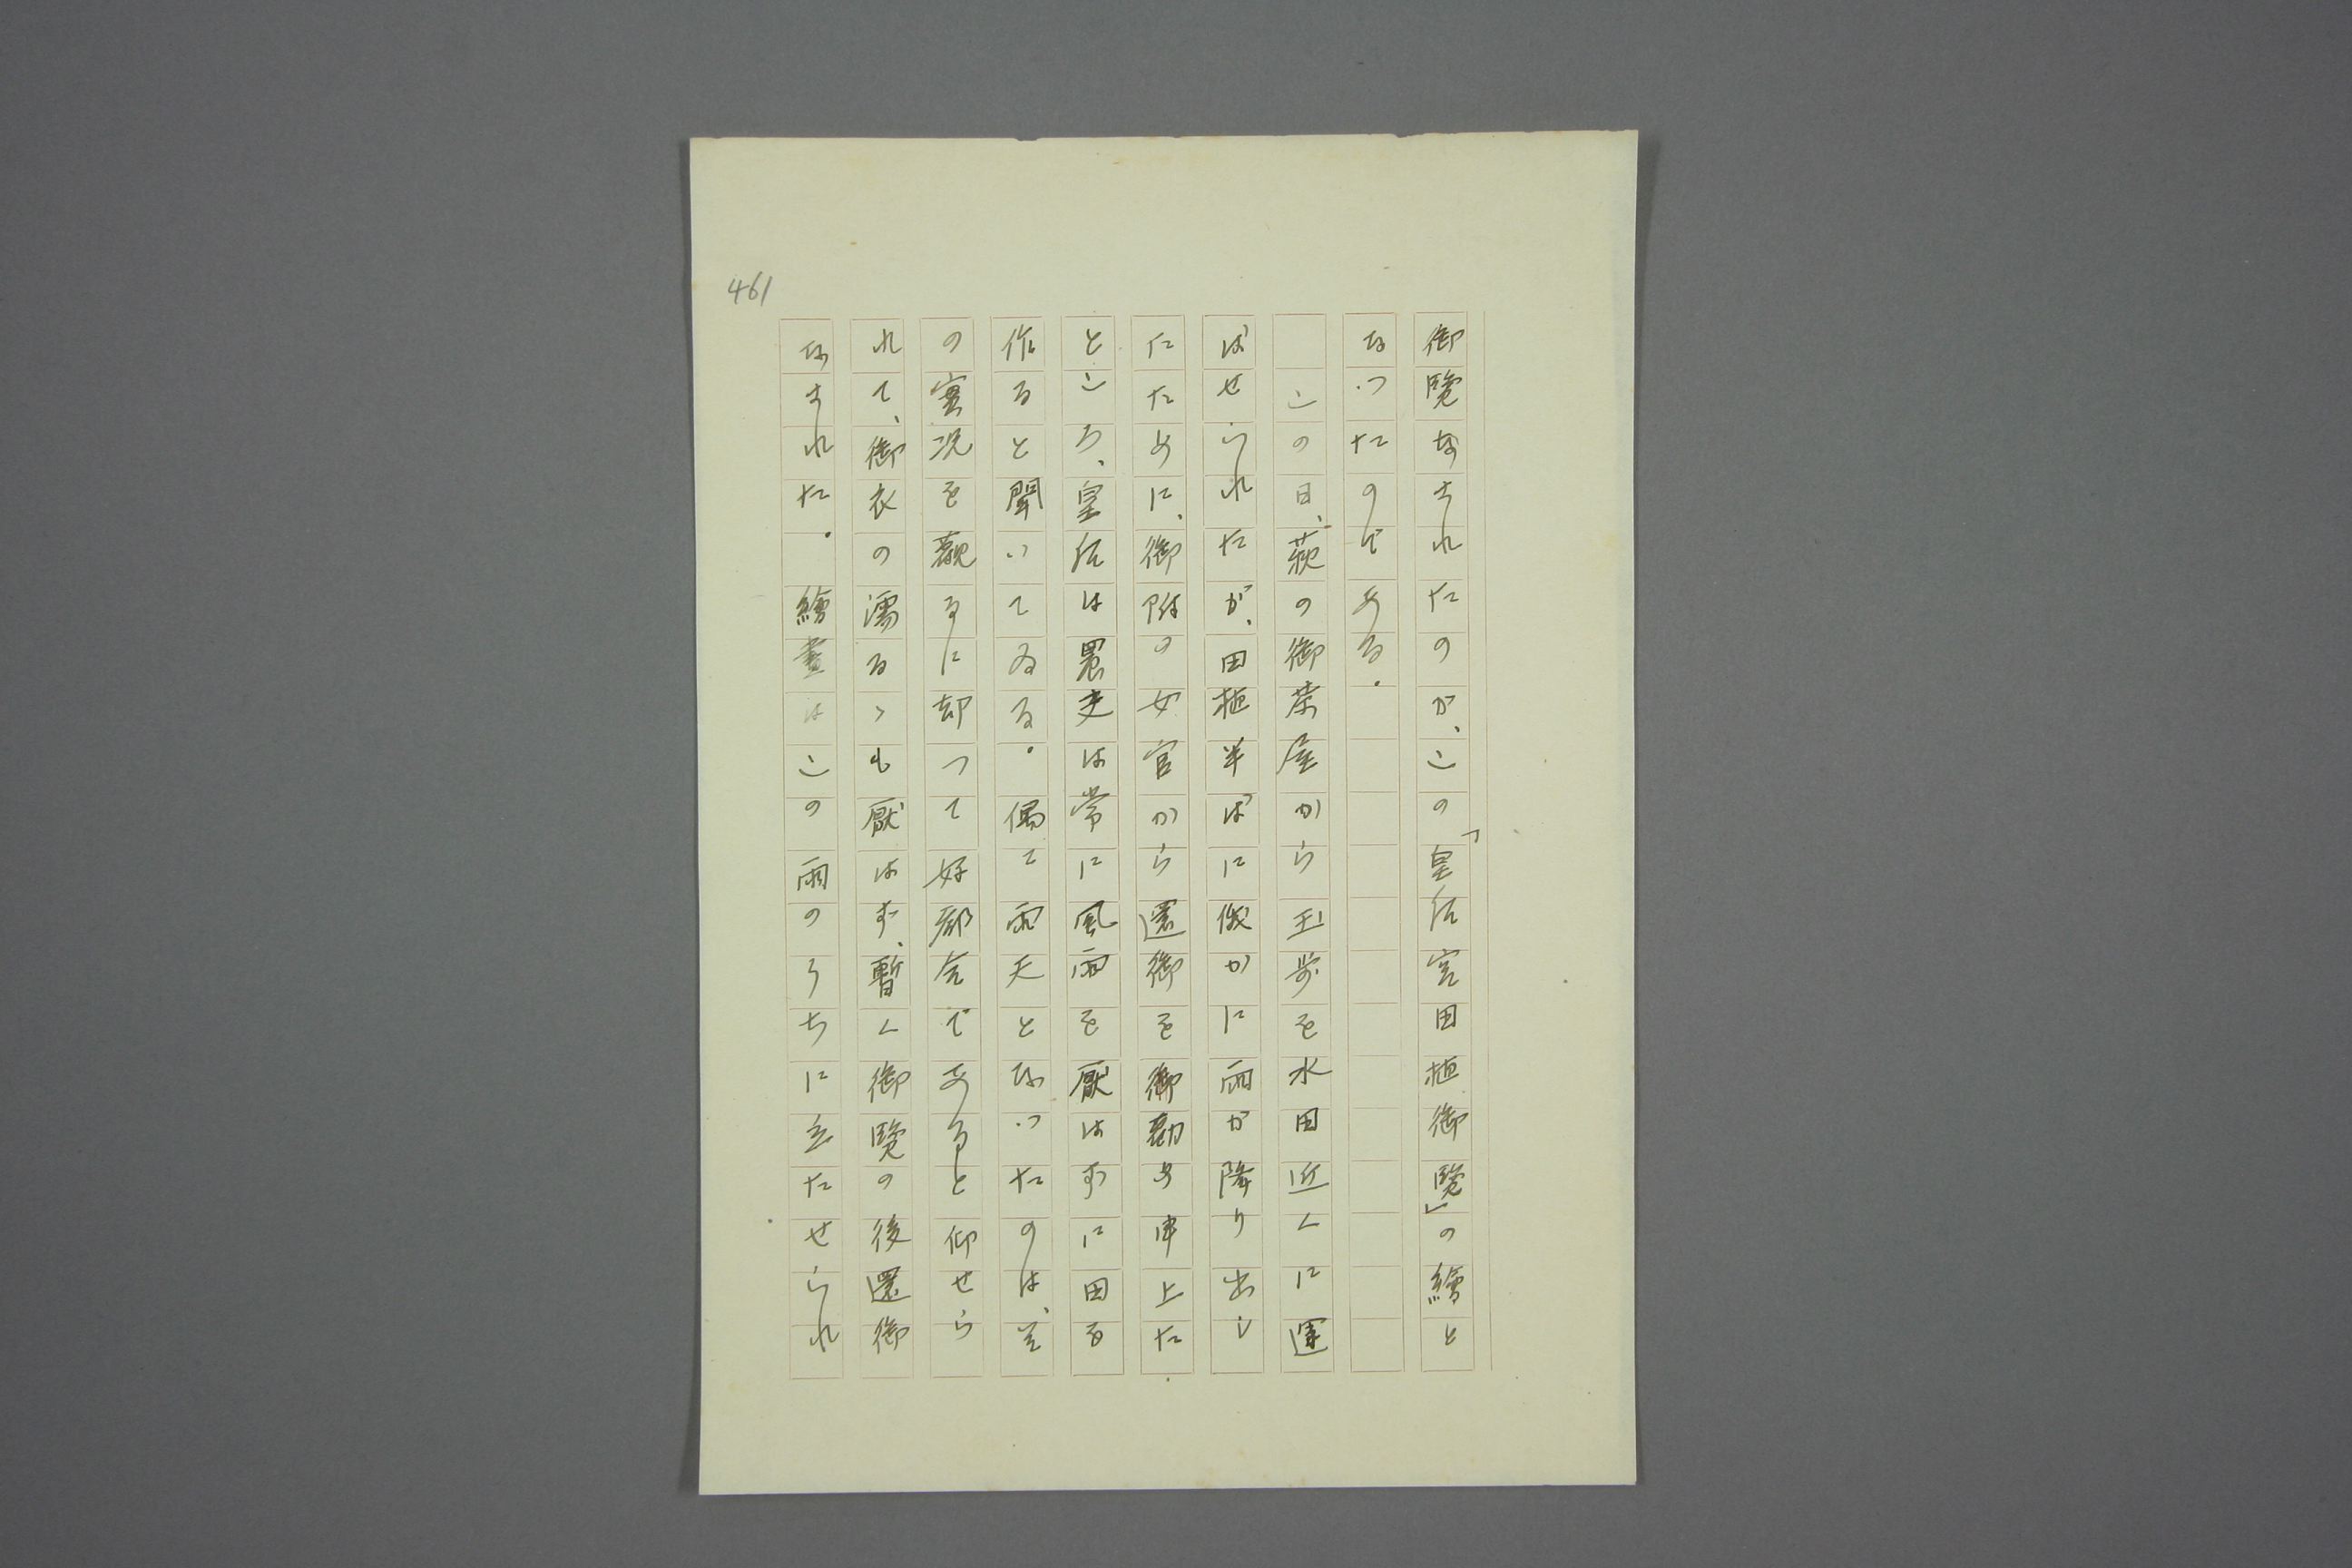 461
御覧なされたのが、この「皇后宮田植御覧」の繪と
なつたのである。
この日、萩の御茶屋から玉歩を水田近くに運
ばせられたが、田植半ばに俄かに雨が降り出し
たために、御附の女官から還御を御勸め申上た
ところ、皇后は農夫は常に風雨を厭はずに田を
作ると聞いてゐる。偶て雨天となつたのは、そ
の實況を観るに却つて好都合であると仰せら
れて、御衣の濡るゝも厭はず、暫く御覧の後還御
なされた。繪畫はこの雨のうちに立たせられ